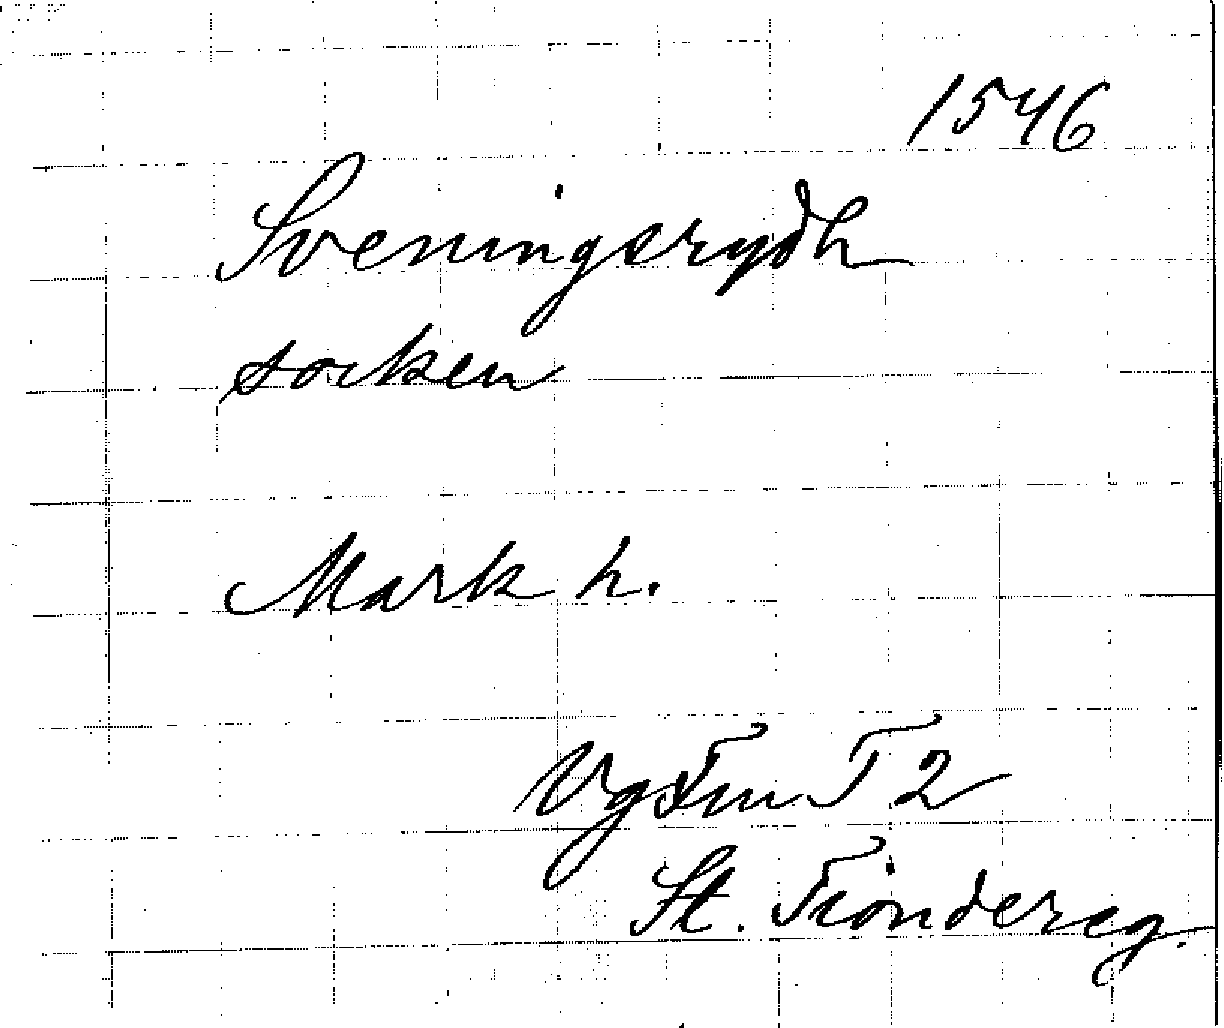 1546
Sveningsrydh
socken
Mark h.
Vg Fm T 2
St. Tiondereg.